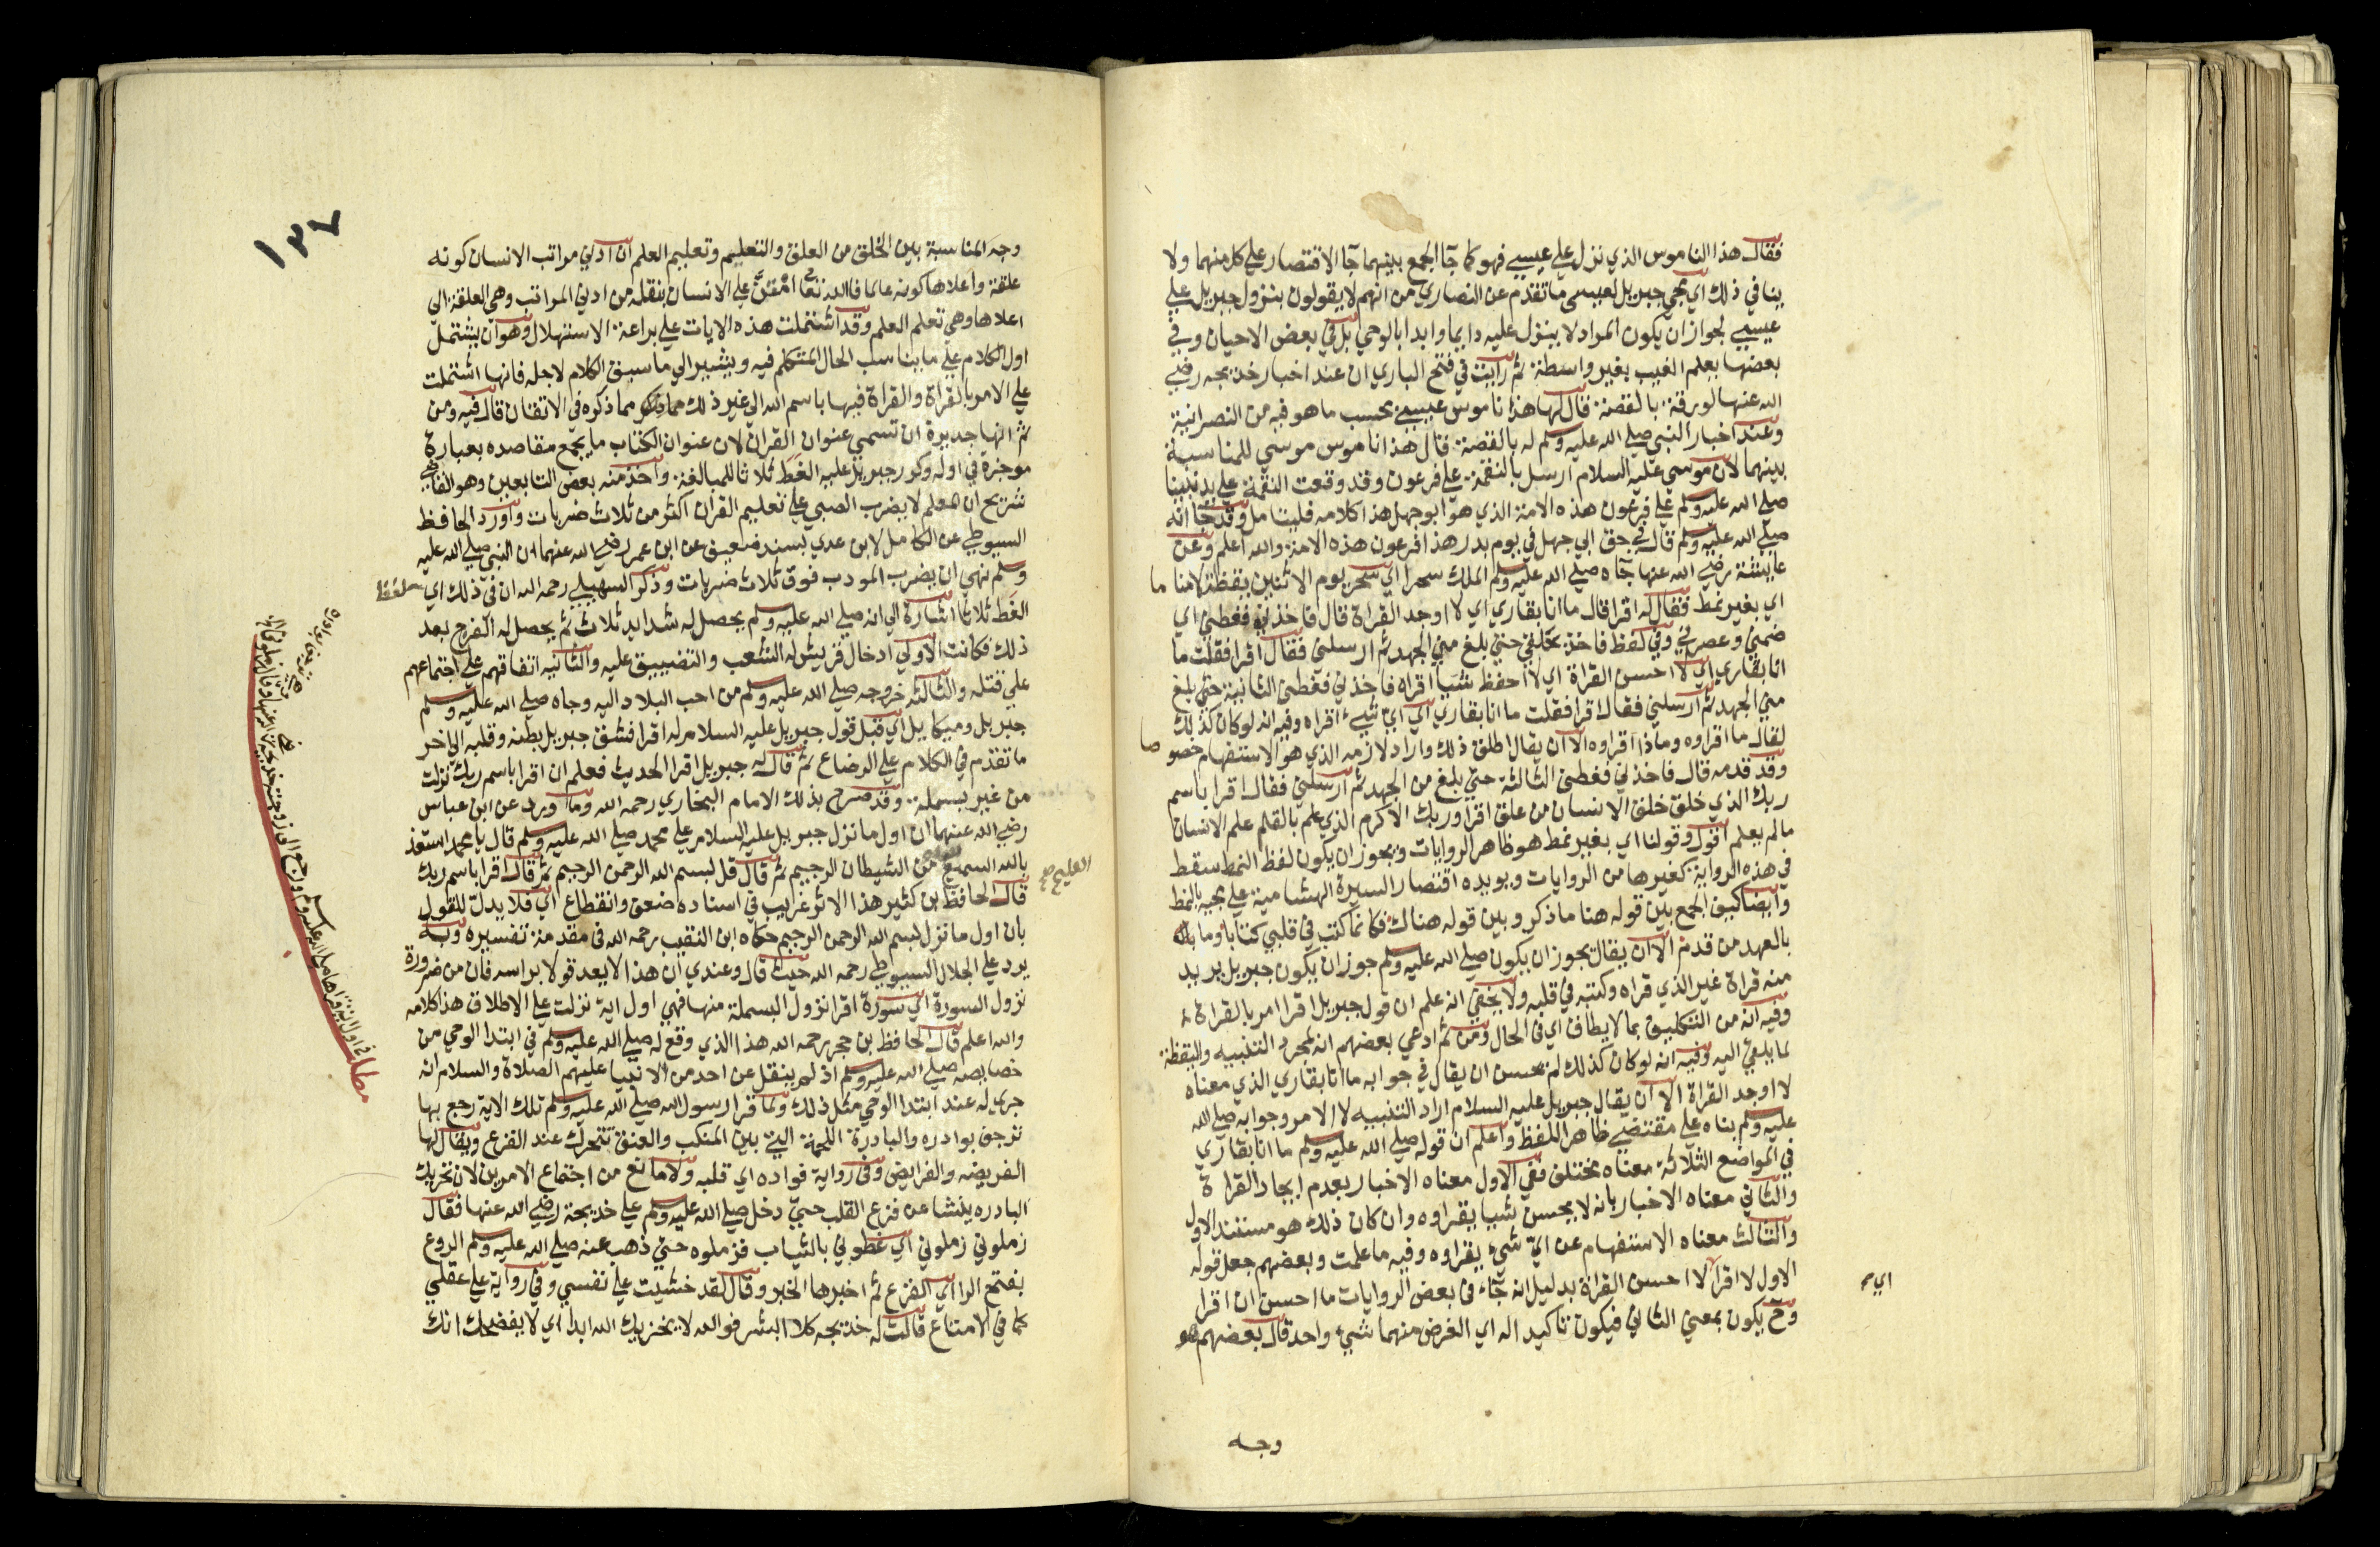 فقال هذا الناموس الذي نزل علي عيسي فهو كما جآ الجمع بينهما جآ الاقتصار علي كل منهما ولا
ينافي ذلك اي مجي جبريل لعيسي ما تقدم عن النصاري من انهم لا يقولون بنزول جبريل علي
عيسي لجواز ان يكون المراد لا ينزل عليه دايما وابدا بالوحي بل في بعض الاحيان وفي
بعضها يعلم الغيب بغير واسطة ثم رايت في فتح الباري ان عند اخبار خديجه رضي
الله عنها لورقة بالقصة قال لها هذا ناموس عيسي بحسب ما هو فيه من النصرانية
وعند اخبار النبي صلي الله عليه وسلم له بالقصة قال هذا ناموس موسي للمناسبة
بينهما لان موسي عليه السلام ارسل بالنقمة علي فرعون وقد وقعت النقمة علي يد نبينا
صلي الله عليه وسلم علي فرعون هذه الامة الذي هو ابو جهل هذا كلامه فليتامل وقد جآ انه
صلي الله عليه وسلم قال في حق ابي جهل في يوم بدر هذا فرعون هذه الامة والله اعلم وعن
عايشة رضي الله عنها جآه صلي الله عليه وسلم الملك سحرا اي سحر يوم الاثنين يقظة لا مناما
اي بغير نمط فقال له اقرا قال ما انا بقاري اي لا اوجد القراة قال فاخذني فغطني اي
ضمني وعصرني وفي لفظ فاخذ بحلقي حتي بلغ مني الجهد ثم ارسلني فقال اقرا فقلت ما
انا بقاري اي لا احسن القراة اي لا احفظ شيا اقراه فاخذني فغطني الثانية حتي بلغ
مني الجهد ثم ارسلني فقال اقرا فقلت ما انا بقاري اي اي شيء اقراه وفيه انه لو كان كذلك
لقال ما اقراوه وماذا اقراوه الا ان يقال اطلق ذلك واراد لازمه الذي هو الاستفهام خصوصا
وقد قدمه قال فاخذني فغطني الثالثة حتي بلغ من الجهد ثم ارسلني فقال اقرا باسم
ربك الذي خلق خلق الانسان من علق اقرا وربك الاكرم الذي علم بالقلم علم الانسان
ما لم يعلم اقول وقولنا اي بغير نمط هو ظاهر الروايات ويجوز ان يكون لفظ النمط سقط
في هذه الرواية كغيرها من الروايات ويويده اقتصار السيرة الهشامية علي مجيه بالنمط
وايضا كيف الجمع بين قوله هنا ما ذكر وبين قوله هناك فكانما كتب في قلبي كتابا وما
بالعهد من قدم الا ان يقال يجوز ان يكون صلي الله عليه وسلم جوز ان يكون جبريل يريد
منه قراة غير الذي قراه وكتبه في قلبه ولا يخفي انه علم ان قول جبريل اقرا امر بالقراة
وفيه انه من التكليف بما لا يطاق اي في الحال ومن ثم ادعي بعضهم انه لمجرد التنبيه واليقظة
لما يلقي اليه وفيه انه لو كان كذلك لم يحسن ان يقال في جوابه ما انا بقاري الذي معناه
لا اوجد القراة الا ان يقال جبريل عليه السلام اراد التنبيه لا الامر وجوابه صلي الله
عليه وسلم بناه علي مقتضي ظاهر اللفظ واعلم ان قوله صلي الله عليه وسلم ما انا بقاري
في المواضع الثلاثة معناه مختلف ففي الاول معناه الاخبار بعدم ايجاد القراة
والثاني معناه الاخبار بانه لا يحسن شيا يقراوه وان كان ذلك هو مستند الاول
والثالث معناه الاستفهام عن اي شيء يقراوه وفيه ما علمت وبعضهم جعل قوله
الاول لا اقرا لا احسن القراة بدليل انه جآء في بعض الروايات ما احسن ان اقرا
اي
وح يكون بمعني الثاني فيكون تاكيدا له اي الغرض منهما شيء واحد قال بعضهم
وجه
١٣٧
وجه المناسبة بين الخلق من العلق والتعليم وتعليم العلم ان ادني مراتب الانسان كونه
علقة واعلاها كونه عالما فالله تعالي امتن علي الانسان بنقله من ادني المراتب وهي العلقة الي
اعلاها وهي تعلم العلم وقد اشتملت هذه الايات علي براعة الاستهلال وهو ان يشتمل
اول الكلام علي ما يناسب الحال المتكلم فيه ويشير الي ما سبق الكلام لاجله فانها اشتملت
علي الامر بالقراة والقراة فيها باسم الله الي غير ذلك مما ذكره في الاتقان قال فيه ومن
ثم انها جديرة ان تسمي عنوان القران لان عنوان الكتاب ما يجمع مقاصده بعبارة
موجزة في اوله وكرر جبريل عليه الغط ثلاثا للمبالغة واخذ منه بعض التابعين وهو القاضي
شريح ان المعلم لا يضرب الصبي علي تعليم القران اكثر من ثلاث ضربات واورد الحافظ
السيوطي عن الكامل لابن عدي بسند ضعيف عن ابن عمر رضي الله عنهما ان النبي صلي الله عليه
وسلم نهي ان يضرب المودب فوق ثلاث ضربات وذكر السهيلي رحمه الله ان في ذلك اي
الغط ثلاثا اشارة الي انه صلي الله عليه وسلم يحصل له شدايد ثلاث ثم يحصل له الفرج بعد
ذلك فكانت الاولي ادخال قريش له الشعب والتضييق عليه والثانيه اتفاقهم علي اجتماعهم
علي قتله والثالثه خروجه صلي الله عليه وسلم من احب البلاد اليه وجاه صلي الله عليه وسلم
جبريل وميكايل اي قبل قول جبريل عليه السلام له اقرا فشق جبريل بطنه وقلبه الي اخر
ما تقدم في الكلام علي الرضاع ثم قال له جبريل اقرا الحديث فعلم ان اقرا باسم ربك نزلت
من غير بسملة وقد صرح بذلك الامام البخاري رحمه الله وما ورد عن ابن عباس
رضي الله عنهما ان اول ما نزل جبريل عليه السلام علي محمد صلي الله عليه وسلم قال يا محمد استعذ
بالله السميع من الشيطان الرجيم ثم قال قل بسم الله الرحمن الرحيم ثم قال اقرا باسم ربك
العليم صح
قال الحافظ بن كثير هذا الاثر غريب في اسناده ضعف وانقطاع اي فلا يدل للقول
بان اول ما نزل بسم الله الرحمن الرحيم حكاه ابن النقيب رحمه الله في مقدمة تفسيره وبه
يرد علي الجلال السيوطي رحمه الله حيث قال وعندي ان هذا لا يعد قولا براسه فان من ضرورة
نزول السورة اي سورة اقرا نزول البسملة منها فهي اول اية نزلت علي الاطلاق هذا كلامه
والله اعلم قال الحافظ بن حجر رحمه الله هذا الذي وقع له صلي الله عليه وسلم في ابتدا الوحي من
خصايصه صلي الله عليه وسلم اذ لم ينقل عن احد من الانبيا عليهم الصلاة والسلام انه
جري له عند ابتدا الوحي مثل ذلك ولما قرا رسول الله صلي الله عليه وسلم تلك الاية رجع بها
ترجف بوادره والبادرة اللحمة التي بين المنكب والعنق تتحرك عند الفزع ويقال لها
الفريصه والفرايص وفي رواية فواده اي قلبه ولا مانع من اجتماع الامرين لان تحريك
البادره ينشا عن فزع القلب حتي دخل صلي الله عليه وسلم علي خديجة رضي الله عنها فقال
زملوني زملوني اي غطوني بالثياب فزملوه حتي ذهب عنه صلي الله عليه وسلم الروع
بفتح الرا اي الفزع ثم اخبرها الخبر وقال لقد خشيت علي نفسي وفي رواية علي عقلي
كما في الامتاع قالت له خديجه كلا ابشر فوالله لا يخزيك الله ابدا اي لا يفضحك انك